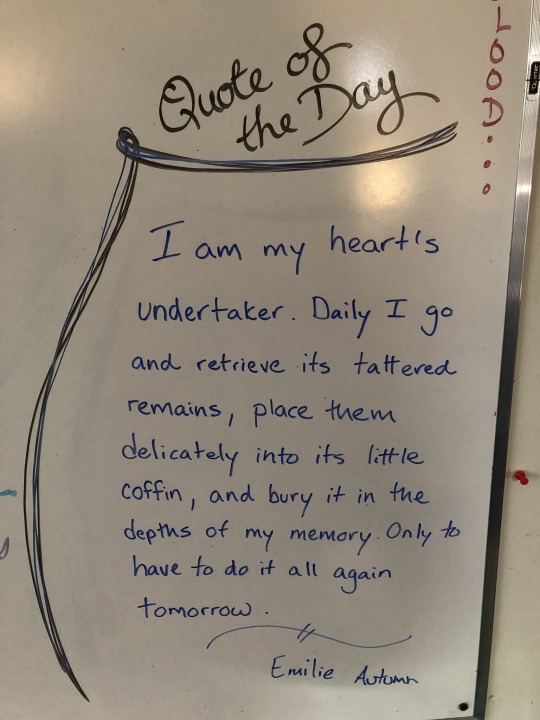 Quote of
the Day
I am my heart's
undertaker. Daily I go
and retrieve its tattered
remains, place them
delicately into its little
coffin, and bury it in the
depths of my memory. Only to
have to do it all again
tomorrow.
Emilie Autumn
LOOD...